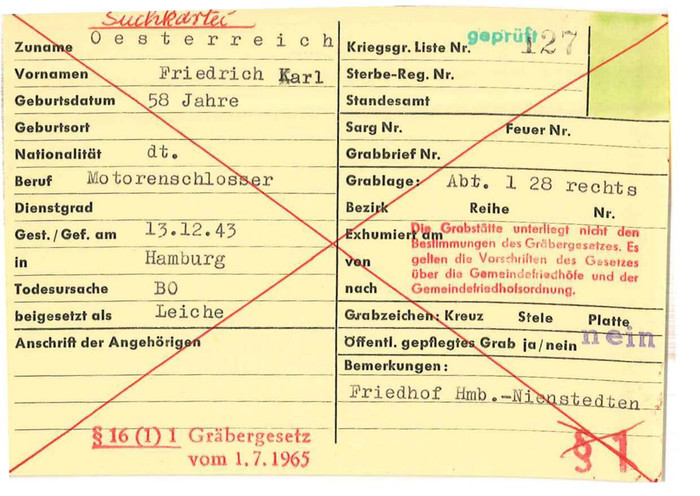 Suchkartei
Zuname Oesterreich
Vornamen Friedrich Karl
Geburtsdatum 58 Jahre
Geburtsort
Nationalität dt.
Beruf Motorenschlosser
Dienstgrad
Gest./Gef. am 13.12.43
in Hamburg
Todesursache BO
beigesetzt als Leiche
Anschrift der Angehörigen
§ 16 (1) 1 Gräbergesetz
vom 1.7.1965
geprüft
Kriegsgr. Liste Nr. 127
Sterbe-Reg. Nr.
Standesamt
Sarg Nr. Feuer Nr.
Grabbrief Nr.
Grablage: Abt. 1 28 rechts
Bezirk Reihe Nr.
Exhumiert am
von
nach
Die Grabstätte unterliegt nicht den
Bestimmungen des Gräbergesetzes. Es
gelten die Vorschriften des Gesetzes
über die Gemeindefriedhöfe und der
Gemeindefriedhofsordnung.
Grabzeichen: Kreuz Stele Platte
Öffentl. gepflegtes Grab ja/nein nein
Bemerkungen:
Friedhof Hmb.-Nienstedten
§ 1